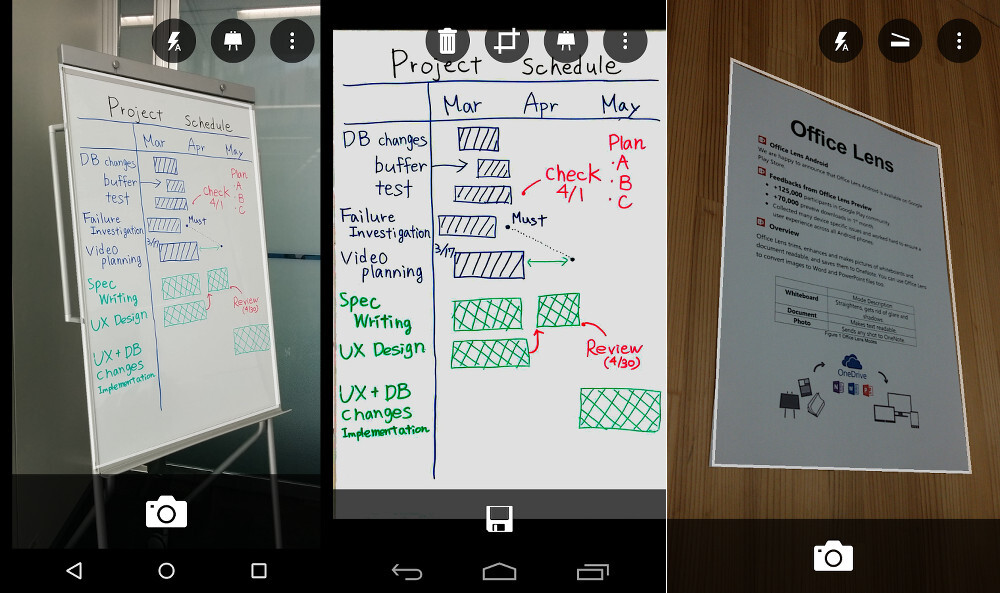 Project Schedule
Mar Apr May
DB changes
buffer
test
Failure
Investigation
Video
planning
3/17
Must
Check
4/1
Plan
·A
·B
·C
Spec
Writing
UX Design
Review
(4/30)
UX + DB
Changes
Implementation
Project Schedule
Mar Apr May
DB changes
buffer
test
Failure
Investigation
Video
planning
3/17
Must
Check
4/1
Plan
·A
·B
·C
Spec
Writing
UX Design
Review
(4/30)
UX + DB
Changes
Implementation
Office Lens
Office Lens Android
We are happy to announce that Office Lens Android is available on Google
Play Store.
Feedbacks from Office Lens Preview
• +125,000 participants in Google Play community
• +70,000 preview downloads in 1st month
• Collected many device specific issues and worked hard to ensure a
user experience across all Android phones.
Overview
Office Lens trims, enhances and makes pictures of whiteboards and
document readable, and saves them to OneNote. You can use Office Lens
to convert images to Word and PowerPoint files too.
Mode Description
Whiteboard Straightens, gets rid of glare and
shadows.
Document Makes text readable.
Photo Sends any shot to OneNote.
Figure 1 Office Lens Modes
OneDrive